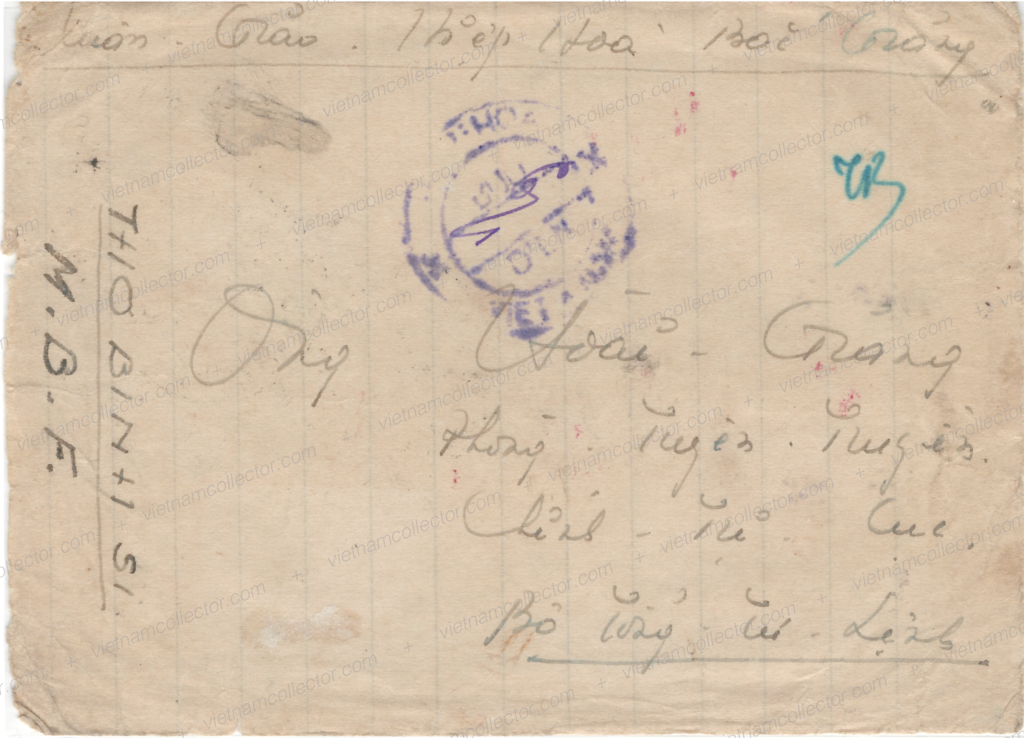 Xuân - Giáo . Hiệp Hoà Bắc Giang
VIET NAM
TB
THƠ BINH SI
M.B.F.
Ông Hoài - Giang
Phòng . Tuyên . Truyền .
Chính - Trị . Cục .
Bộ Tổng - Tư - Lệnh
vietnamcollector.com